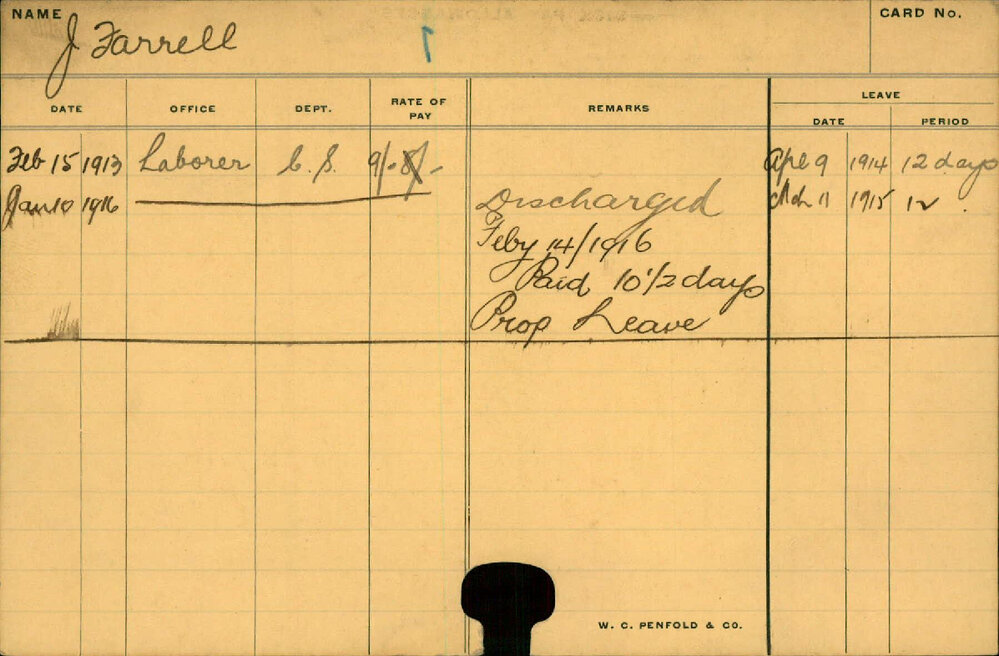 NAME
J Farrell
CARD No.
DATE OFFICE DEPT. RATE OF PAY REMARKS LEAVE
DATE PERIOD
Feb 15 1913 Laborer C.S. 9/- 8/- Apl 9 1914 12 days
Jan 10 1916 Discharged Mch 11 1915 12
Feby 14/1916
Paid 10 1/2 days
Prop Leave
W. C. PENFOLD & CO.